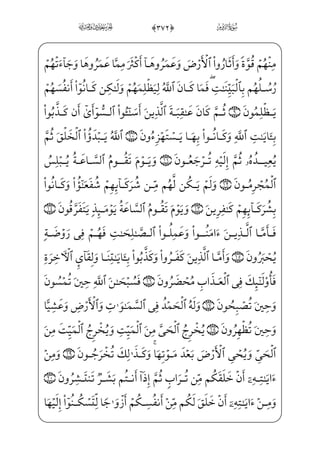 الجزء الحادي والعشرون ﴿٣٧٢﴾ سورة الروم
مِنْهُمْ قُوَّةً وَأَثَارُوا۟ ٱلْأَرْضَ وَعَمَرُوهَآ أَكْثَرَ مِمَّا عَمَرُوهَا وَجَآءَتْهُمْ
رُسُلُهُم بِٱلْبَيِّنَٰتِ ۖ فَمَا كَانَ ٱللَّهُ لِيَظْلِمَهُمْ وَلَٰكِن كَانُوٓا۟ أَنفُسَهُمْ
يَظْلِمُونَ ۝ ثُمَّ كَانَ عَٰقِبَةَ ٱلَّذِينَ أَسَٰٓـُٔوا۟ ٱلسُّوٓأَىٰٓ أَن كَذَّبُوا۟
بِـَٔايَٰتِ ٱللَّهِ وَكَانُوا۟ بِهَا يَسْتَهْزِءُونَ ۝ ٱللَّهُ يَبْدَؤُا۟ ٱلْخَلْقَ ثُمَّ
يُعِيدُهُۥ ثُمَّ إِلَيْهِ تُرْجَعُونَ ۝ وَيَوْمَ تَقُومُ ٱلسَّاعَةُ يُبْلِسُ
ٱلْمُجْرِمُونَ ۝ وَلَمْ يَكُن لَّهُم مِّن شُرَكَآئِهِمْ شُفَعَٰٓؤُا۟ وَكَانُوا۟
بِشُرَكَآئِهِمْ كَٰفِرِينَ ۝ وَيَوْمَ تَقُومُ ٱلسَّاعَةُ يَوْمَئِذٍ يَتَفَرَّقُونَ ۝
فَأَمَّا ٱلَّذِينَ ءَامَنُوا۟ وَعَمِلُوا۟ ٱلصَّٰلِحَٰتِ فَهُمْ فِى رَوْضَةٍ
يُحْبَرُونَ ۝ وَأَمَّا ٱلَّذِينَ كَفَرُوا۟ وَكَذَّبُوا۟ بِـَٔايَٰتِنَا وَلِقَآئِ ٱلْءَاخِرَةِ
فَأُو۟لَٰٓئِكَ فِى ٱلْعَذَابِ مُحْضَرُونَ ۝ فَسُبْحَٰنَ ٱللَّهِ حِينَ تُمْسُونَ
وَحِينَ تُصْبِحُونَ ۝ وَلَهُ ٱلْحَمْدُ فِى ٱلسَّمَٰوَٰتِ وَٱلْأَرْضِ وَعَشِيًّا
وَحِينَ تُظْهِرُونَ ۝ يُخْرِجُ ٱلْحَىَّ مِنَ ٱلْمَيِّتِ وَيُخْرِجُ ٱلْمَيِّتَ مِنَ
ٱلْحَىِّ وَيُحْىِ ٱلْأَرْضَ بَعْدَ مَوْتِهَا ۚ وَكَذَٰلِكَ تُخْرَجُونَ ۝ وَمِنْ
ءَايَٰتِهِۦٓ أَنْ خَلَقَكُم مِّن تُرَابٍ ثُمَّ إِذَآ أَنتُم بَشَرٌ تَنتَشِرُونَ ۝
وَمِنْ ءَايَٰتِهِۦٓ أَنْ خَلَقَ لَكُم مِّنْ أَنفُسِكُمْ أَزْوَٰجًا لِّتَسْكُنُوٓا۟ إِلَيْهَا